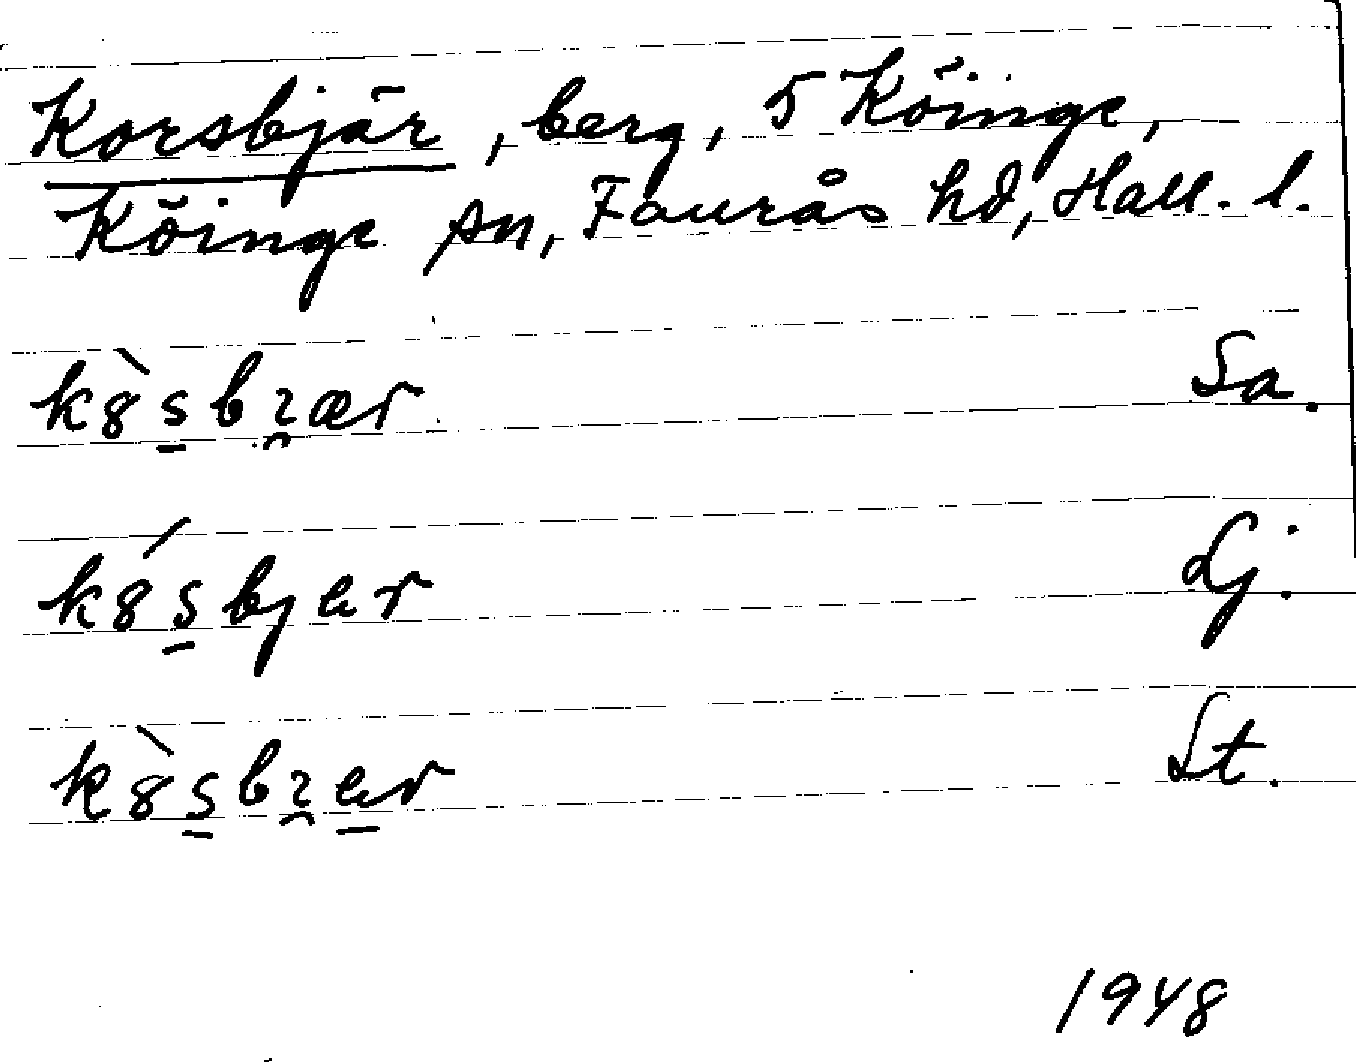 Korsbjär, berg, 5 Köinge,
Köinge sn, Faurås hd, Hall. l.
k8̀s̲bɿ̯ær Sa.
k8́s̲bjer Lj.
k8̀s̲bɿ̯e̲r St.
1948